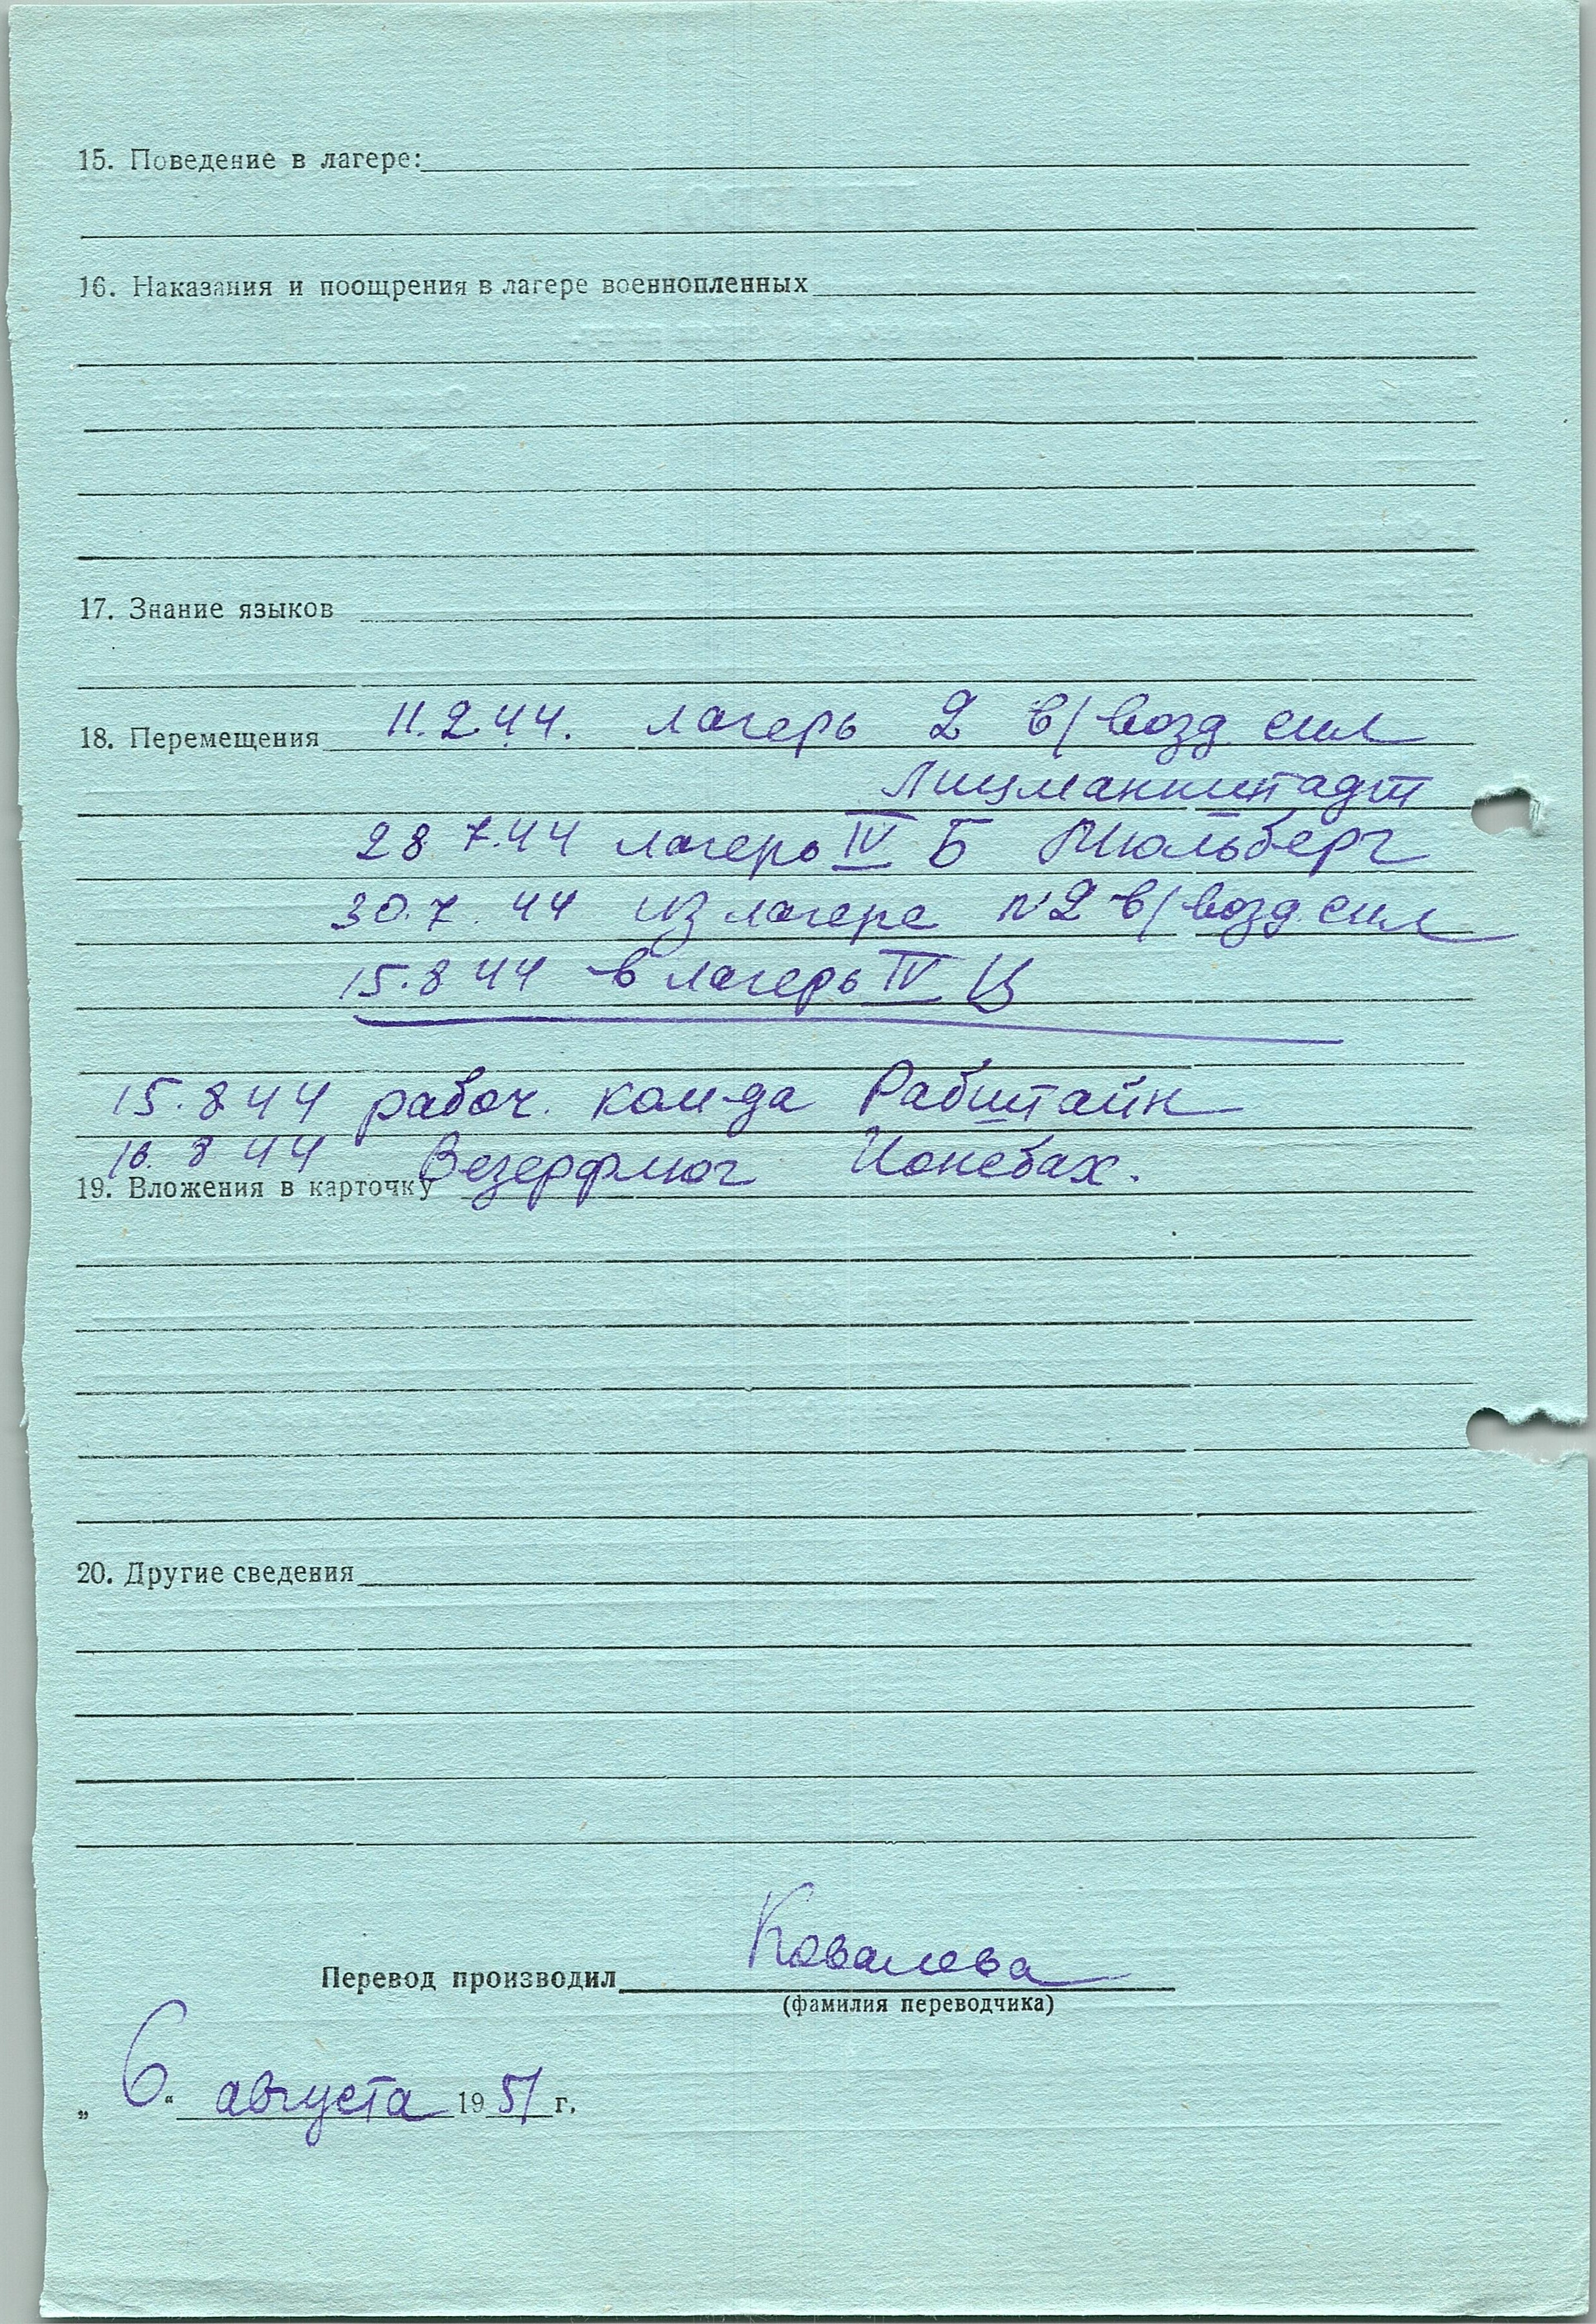 15. Поведение в лагере:
16. Наказания и поощрения в лагере военнопленных
17. Знание языков
18. Перемещения 11.2.44. лагерь 2 в/возд. сил
Лицманштадт
28 7.44 лагерь IV Б Мюльберг
30.7.44 из лагеря № 2 в/возд. сил
15.8 44 в лагерь IV Ц
15.8 44 рабоч. ком-да Рабштайн
16. 8 44 Везерфлюг Ионсбах.
19. Вложения в карточку
20. Другие сведения
Перевод производил Ковалева
(фамилия переводчика)
„ 6 “ августа 1951 г.